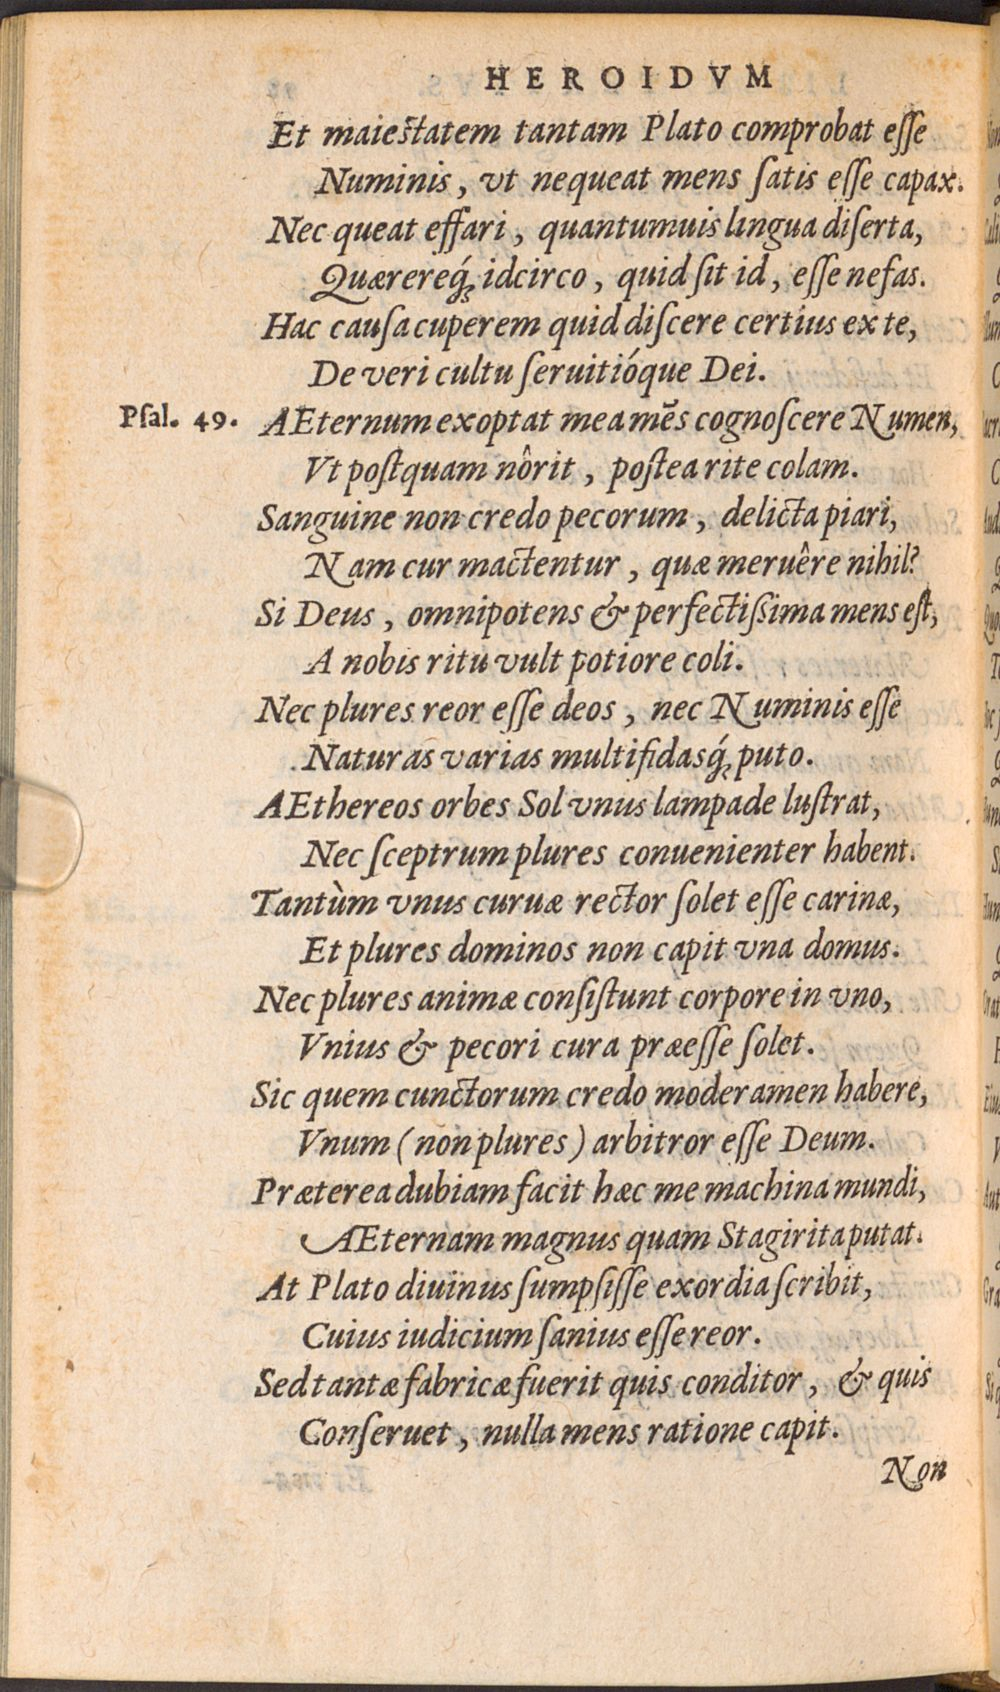 HEROIDVM
Et maiestatem tantam Plato comprobat eſſe
Numinis, vt nequeat mens ſatis eſſe capax.
Nec queat effari, quantumuis lingua diſerta,
Quærereq́ꝫ idcirco, quid ſit id, eſſe nefas.
Hac cauſa cuperem quid diſcere certius ex te,
De veri cultu ſeruitióque Dei.
Pſal. 49. AEternum exoptat mea mēs cognoſcere Numen,
Vt poſtquam nôrit, poſtea rite colam.
Sanguine non credo pecorum, delicta piari,
Nam cur mactentur, quæ meruêre nihil?
Si Deus, omnipotens & perfectiſſima mens eſt,
A nobis ritu vult potiore coli.
Nec plures reor eſſe deos, nec Numinis eſſe
Naturas varias multifidasq́ꝫ puto.
AEthereos orbes Sol vnus lampade luſtrat,
Nec ſceptrum plures conuenienter habent.
Tantùm vnus curuæ rector ſolet eſſe carinæ,
Et plures dominos non capit vna domus.
Nec plures animæ conſiſtunt corpore in vno,
Vnius & pecori cura præeſſe ſolet.
Sic quem cunctorum credo moderamen habere,
Vnum (non plures) arbitror eſſe Deum.
Præterea dubiam facit hæc me machina mundi,
AEternam magnus quam Stagirita putat.
At Plato diuinus ſumpſiſſe exordia ſcribit,
Cuius iudicium ſanius eſſe reor.
Sed tantæ fabricæ fuerit quis conditor, & quis
Conſeruet, nulla mens ratione capit.
Non